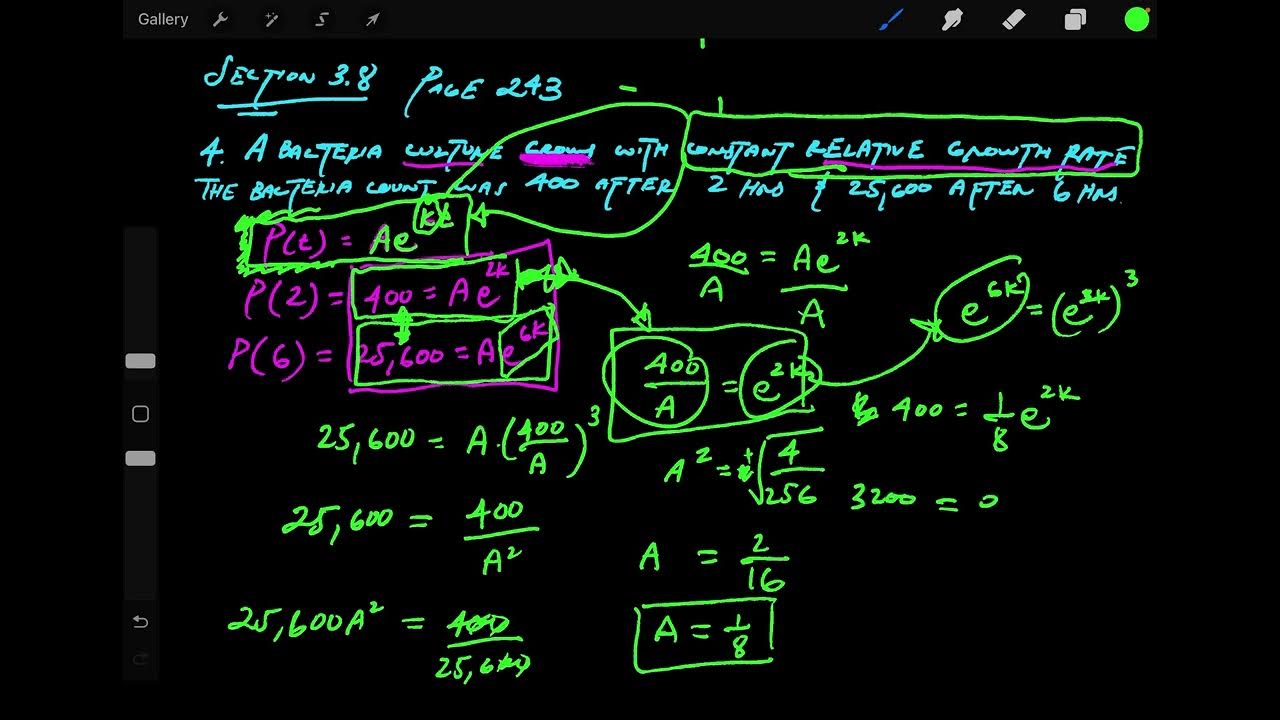 Gallery
SECTION 3.8 PAGE 243
4. A BACTERIA CULTURE GROWS WITH CONSTANT RELATIVE GROWTH RATE
THE BACTERIA COUNT WAS 400 AFTER 2 HRS & 25,600 AFTER 6 HRS.
P(t) = Ae^kt
P(2) = 400 = Ae^2k
P(6) = 25,600 = Ae^6k
25,600 = A·(400/A)^3
25,600 = 400/A^2
25,600A^2 = 400/25,600
400/A = Ae^2k/A
400/A = e^2k
A^2 = ±√4/256
A = 2/16
A = 1/8
e^6k = (e^2k)^3
400 = 1/8 e^2k
3200 =